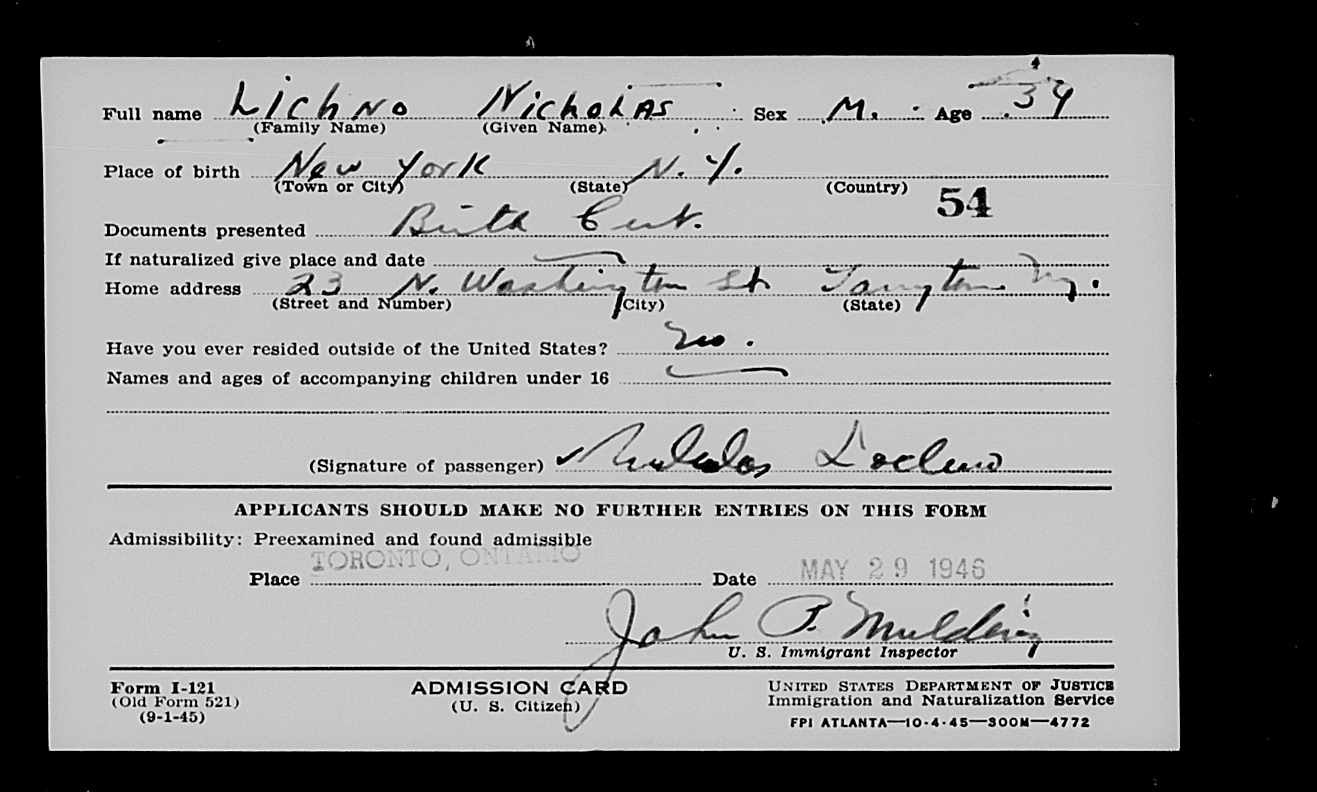 Full name Lichno Nicholas Sex M. Age 34
(Family Name) (Given Name)
Place of birth New York N.Y.
(Town or City) (State) (Country)
54
Documents presented Birth Cert.
If naturalized give place and date
Home address 23 N. Washington St. Tarrytown N.Y.
(Street and Number) (City) (State)
Have you ever resided outside of the United States? No.
Names and ages of accompanying children under 16
(Signature of passenger) Nicholas
APPLICANTS SHOULD MAKE NO FURTHER ENTRIES ON THIS FORM
Admissibility: Preexamined and found admissible
Place TORONTO, ONTARIO Date MAY 29 1946
John P.
U. S. Immigrant Inspector
Form I-121 ADMISSION CARD UNITED STATES DEPARTMENT OF JUSTICE
(Old Form 521) (U. S. Citizen) Immigration and Naturalization Service
(9-1-45) FPI ATLANTA—10-4-45—300M—4772